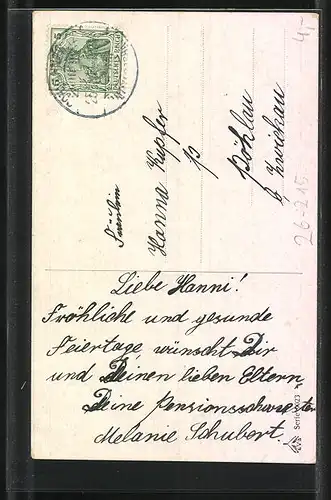 Fräulein
Hanna Kupfer
Pöhlau
b/ Zwickau
Liebe Hanni!
Fröhliche und gesunde
Feiertage wünscht Dir
und Deinen lieben Eltern
Deine Pensionsschwester
Melanie Schubert.
Serie
26-215
4,-
DEUTSCHES REICH